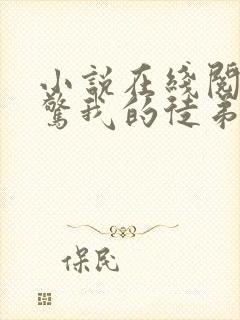 小说在线阅
惊我的徒弟
保民